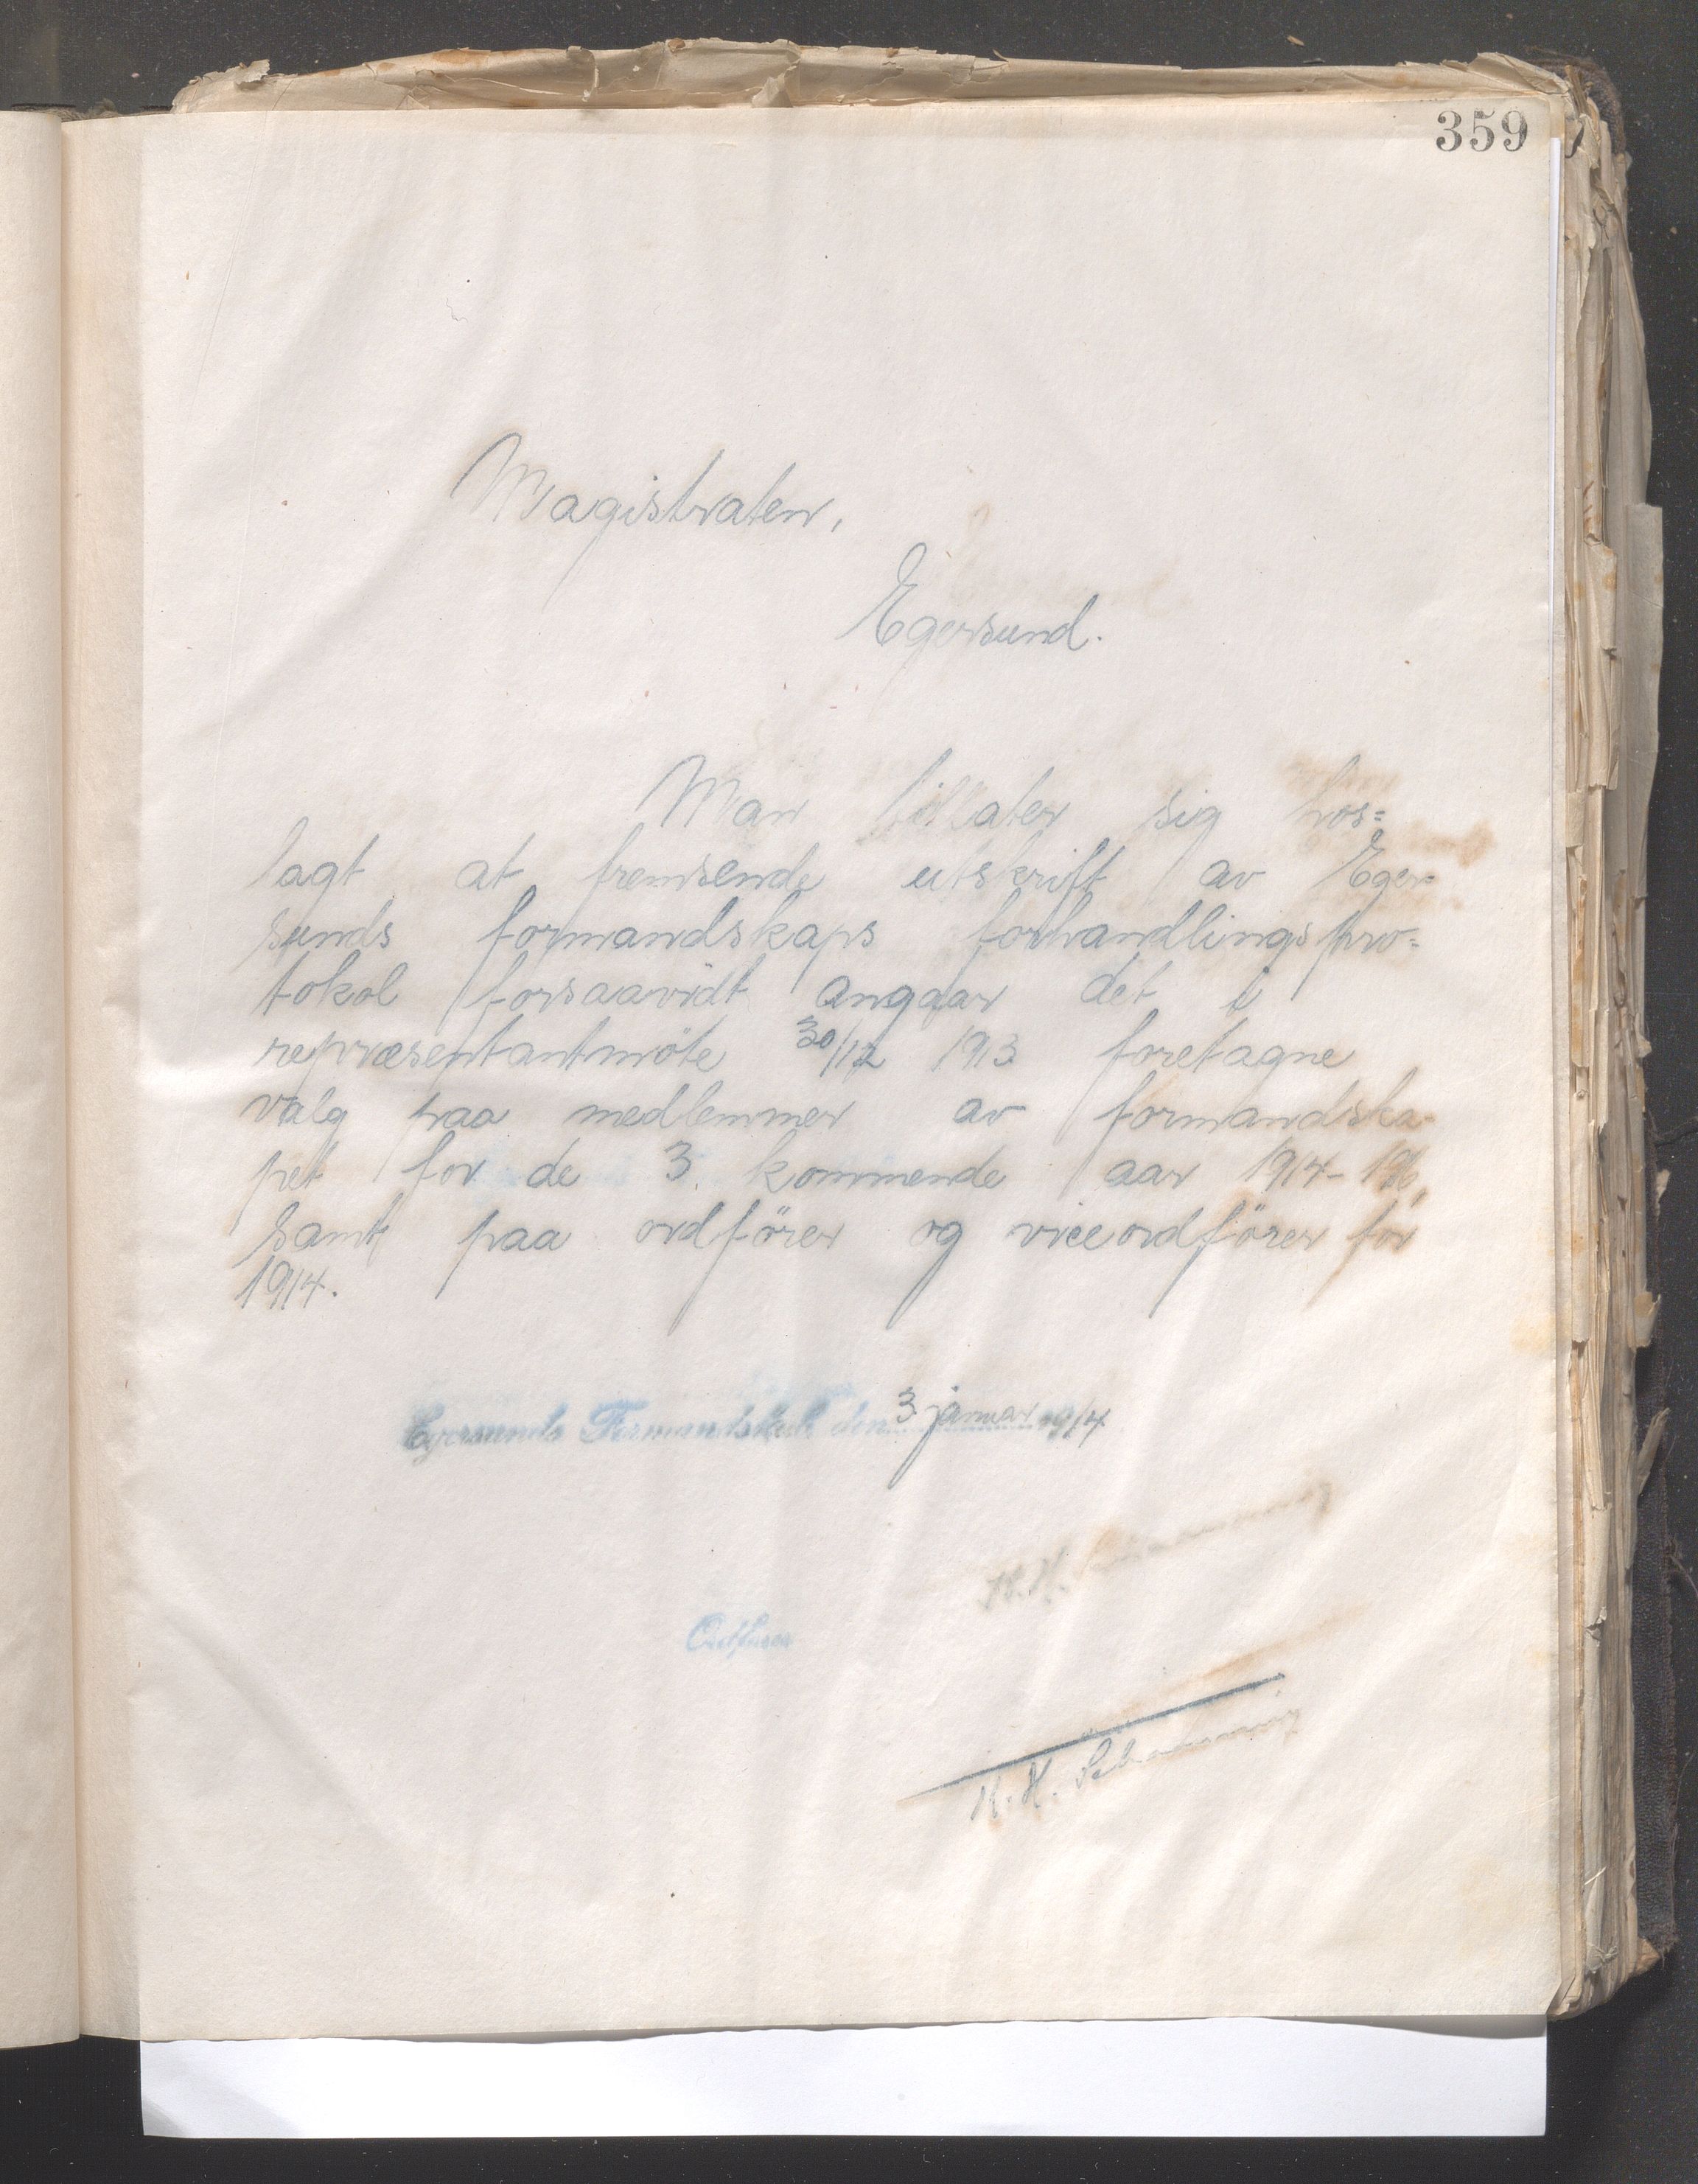 359
Magistraten,
Egersund.
Man tillater sig hos=
lagt at fremsende utskrift av Eger=
sunds formandskaps forhandlingspro=
tokol forsaavidt angaar det i
repræsentantmöte 30/12 1913 foretagne
valg paa medlemmer av formandska-
pet for de 3 kommende aar 1914-196,
samt paa ordförer og viceordförer for
1914.
Egersunds Formandskab den 3. januar 1914
Ordfører